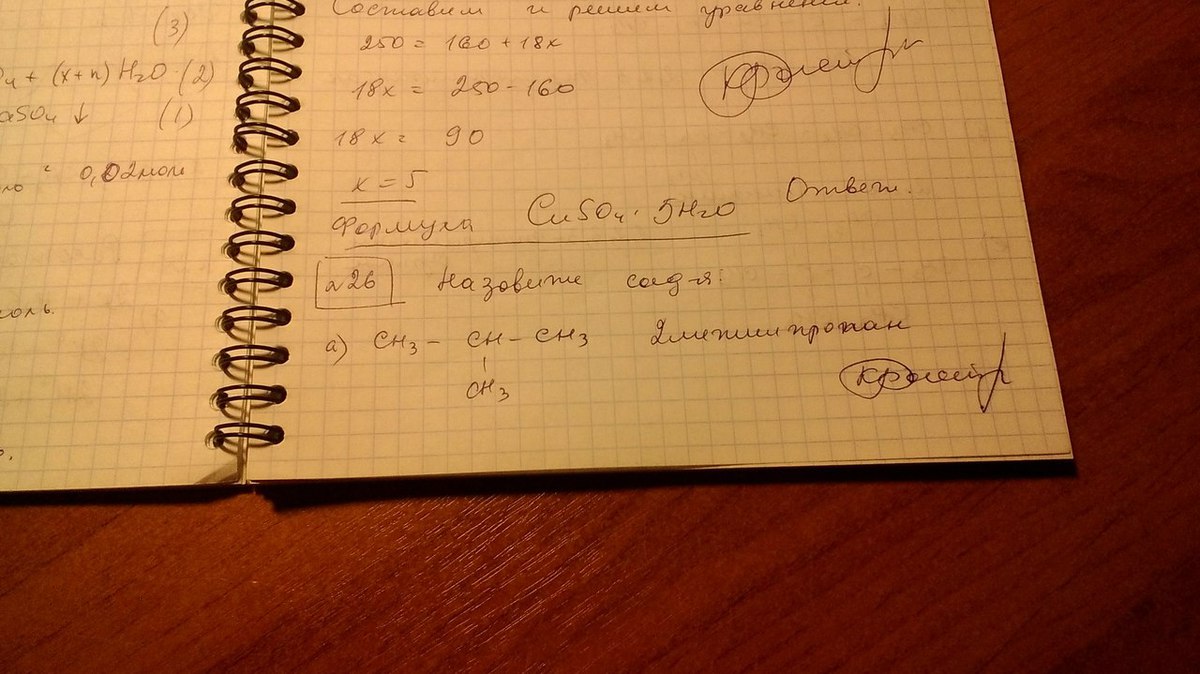 (3)
4 + (x+n) H2O (2)
aSO4 ↓ (1)
0,02 моль
оль.
Составим и решим уравнение:
250 = 160 + 18x
18x = 250 - 160
18x = 90
x = 5
Формула CuSO4 · 5H2O Ответ.
№26 Назовите соед-я:
а) CH3 - CH - CH3 2метилпропан
CH3